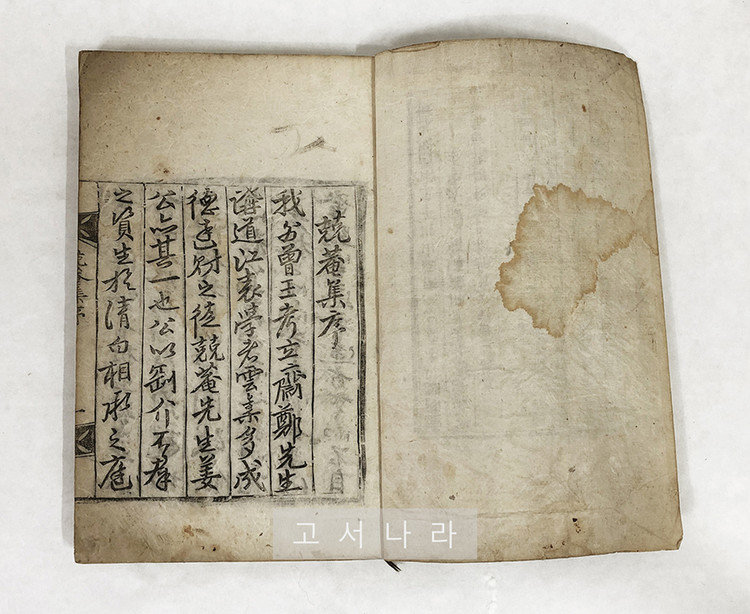 兢菴集序
我外曾王考立齋鄭先生
講道江表學者雲集多成
德達財之徒兢菴先生姜
公亦其一也公以剛介不羣
之質生於清白相承之庭
고서나라